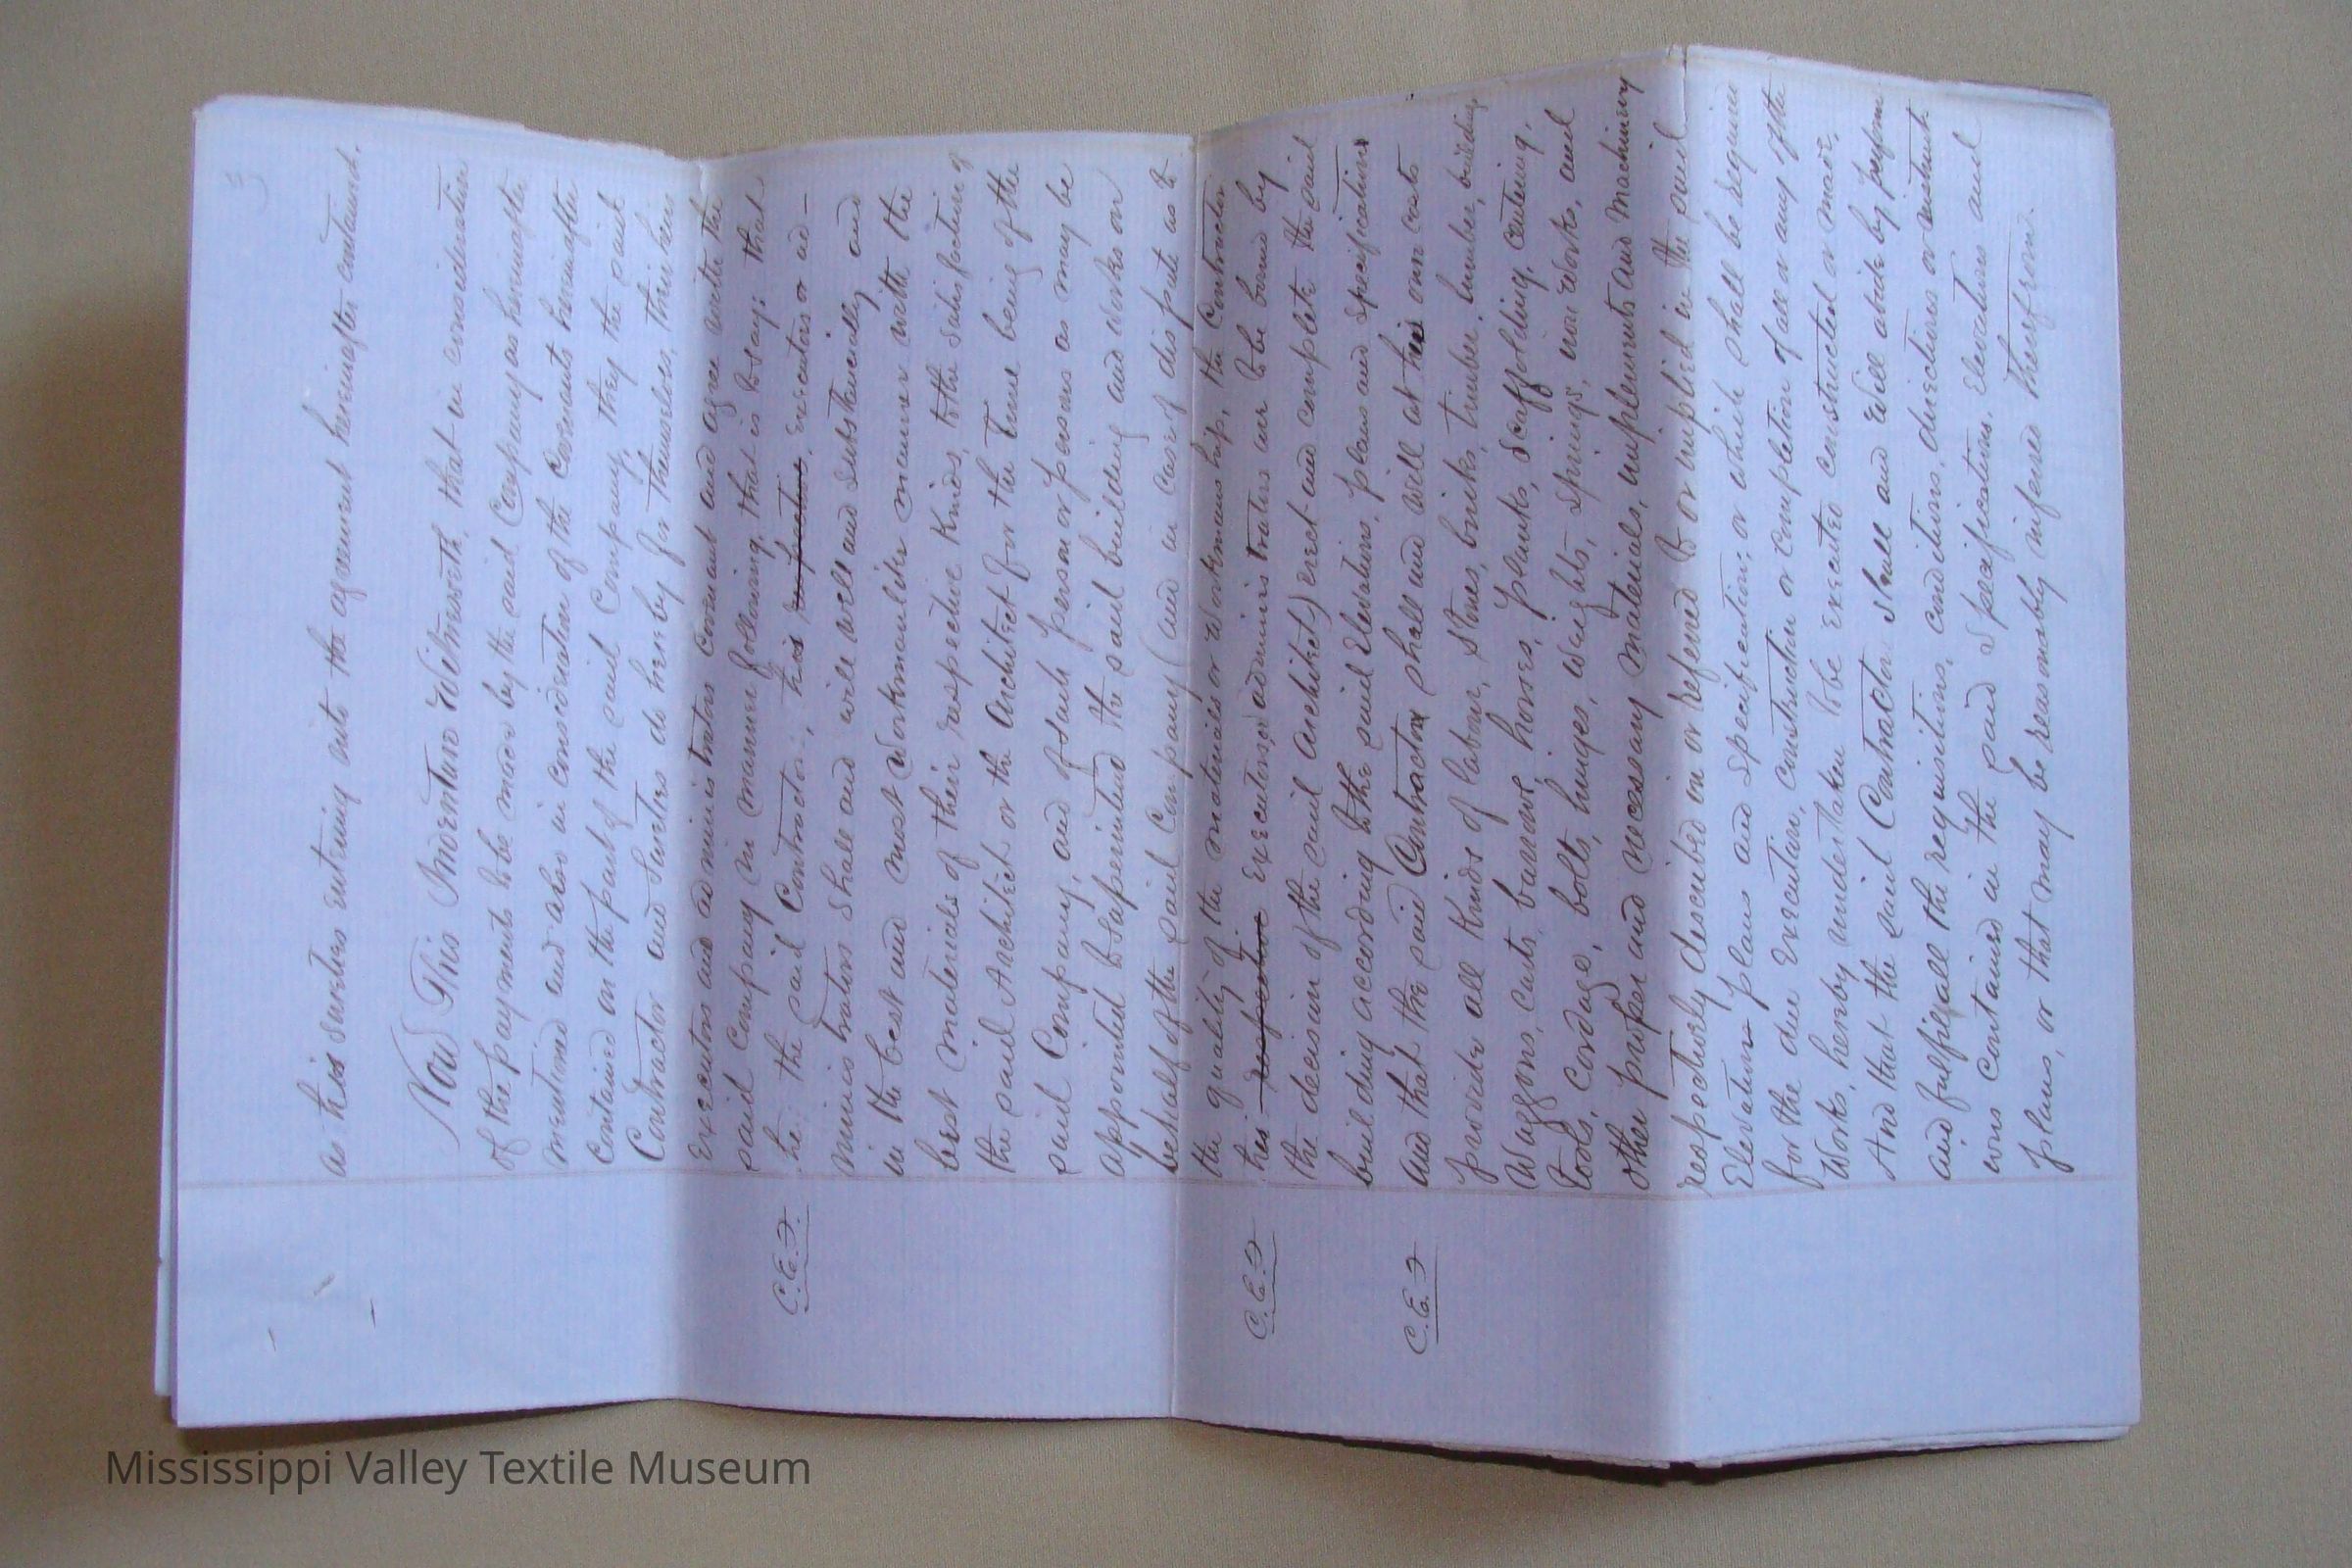 3
as his sureties entering into the agreement hereinafter contained.
Now This Indenture Witnesseth, that in consideration
of the payments to be made by the said Company as hereinafter
mentioned and also in consideration of the Covenants hereinafter
contained on the part of the said Company, they the said
Contractor and Sureties do hereby for themselves, their heirs
Executors and administrators covenant and agree with the
said Company in manner following, that is to say: that
C.E.F. he the said Contractor, his respective executors or ad-
ministrators shall and will well and substantially and
in the best and most workmanlike manner with the
best materials of their respective kinds, to the satisfaction of
the said Architect or the Architect for the time being of the
said Company, and of such person or persons as may be
appointed to superintend the said building and works on
behalf of the said Company (and in case of dispute as to
the quality of the materials or workmanship, the Contractor
C.E.F. his respective Executors, administrators are to be bound by
the decision of the said Architect) erect and complete the said
building according to the said Elevations, plans and specifications
C.E.F. and that the said Contractor shall and will at his own costs
provide all kinds of labour, stones, bricks, timber, lumber, building
Waggons, carts, barrows, horses, planks, scaffolding, centering,
tools, cordage, bolts, hinges, weights, springs, iron works, and
other proper and necessary materials, implements and machinery
respectively described in or referred to or implied in the said
Elevations plans and specification; or which shall be required
for the due execution, construction or completion of all or any of the
Works, hereby undertaken to be executed constructed or made.
And that the said Contractor shall and will abide by perform
and fulfil all the requisitions, conditions, directions or instruct-
ions contained in the said Specifications, Elevations and
plans, or that may be reasonably inferred therefrom.
Mississippi Valley Textile Museum